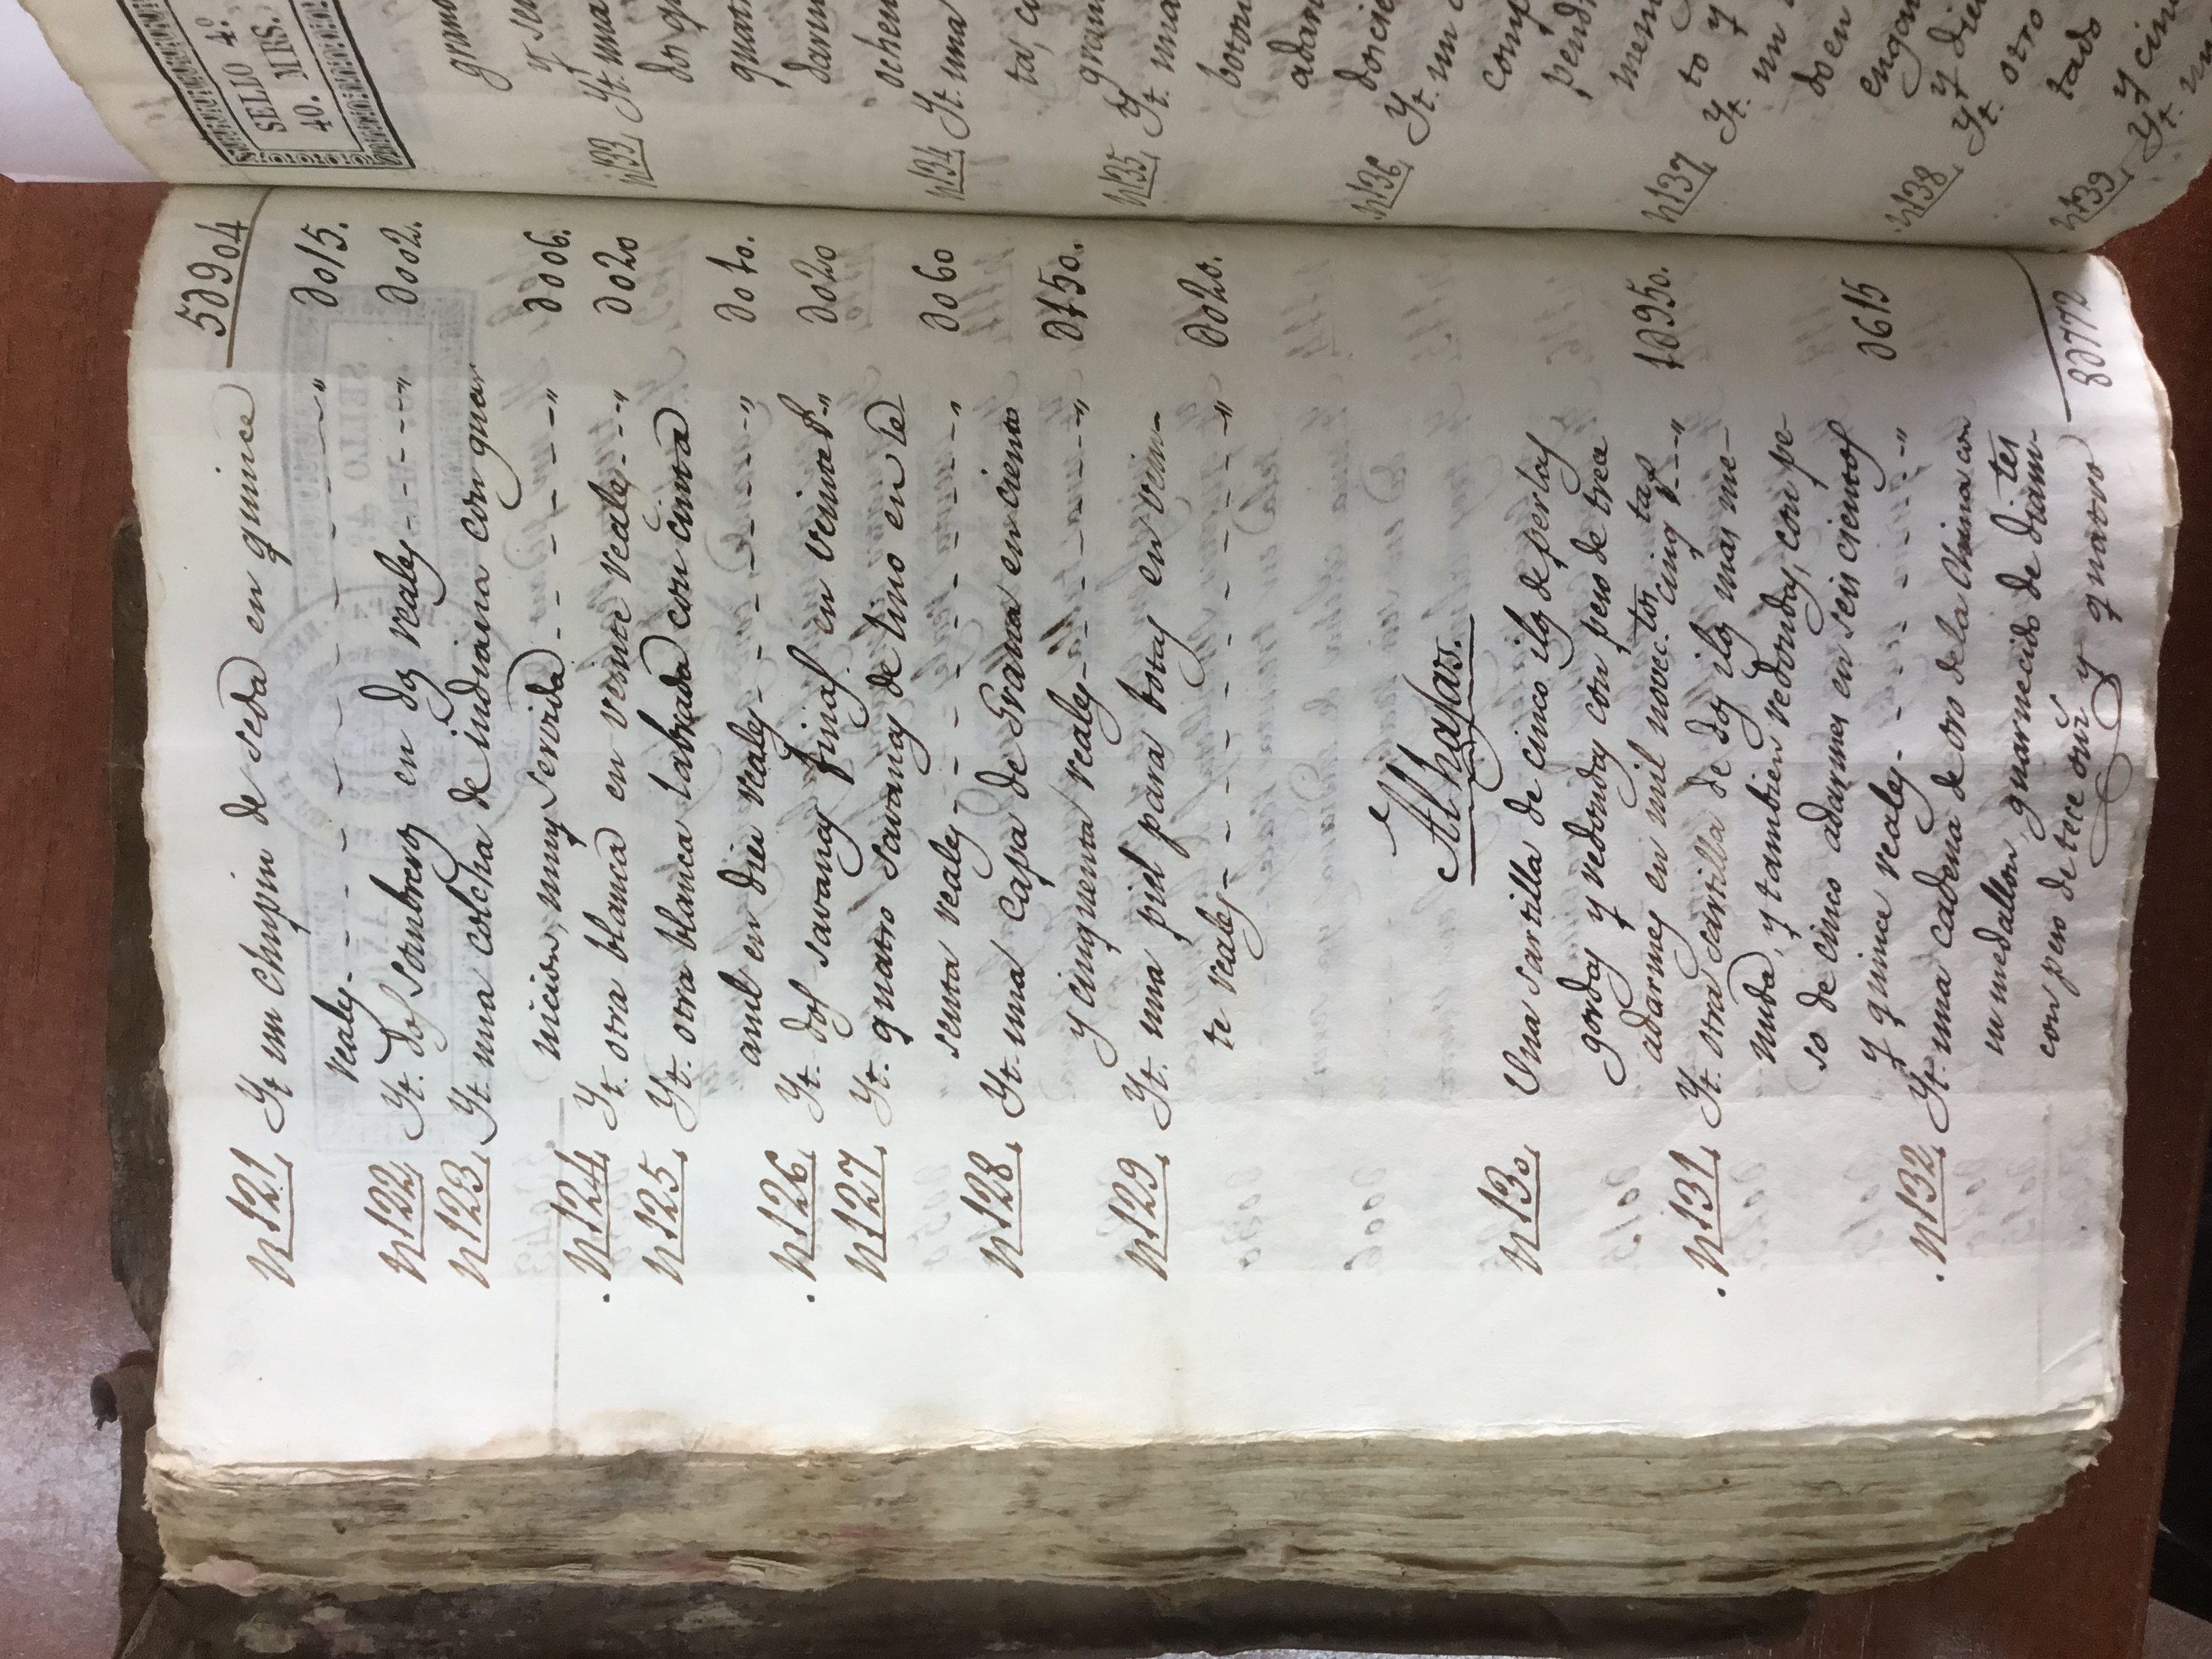 5∂904
N121, Yt. un chupin de seda en quince
reales - - - - - - " ∂015.
N122, Yt. dos sombreros en dos reales - - - - " ∂002.
N123, Yt. una colcha de indiana con guar
nicion, muy servida - - - - - " ∂006.
N124, Yt. otra blanca en veinte reales - - - " ∂020
N125, Yt. otra blanca labrada con cinta
azul en diez reales - - - - - - " ∂010.
N126, Yt. dos savanas finas en veinte r.s - " ∂020
N127, Yt. quatro savanas de lino en se
senta reales - - - - - - - " ∂060
N128, Yt. una Capa de Grana en ciento
y cinquenta reales - - - - - - " ∂150.
N129, Yt. una piel para botas en vein-
te reales - - - - - - - " ∂020.
Alhajas.
N130, Una sartilla de cinco ilos de perlas
gordas y redondas con peso de trece
adarmes en mil novec.tos cinq.tas r.s - - - " 1∂950.
N131, Yt. otra sartilla de dos ilos mas me-
nuda, y tambien redondas, con pe
so de cinco adarmes en seis cientos
y quince reales - - - - - - " ∂615
N132, Yt. una cadena de oro de la China con
un medallon guarnecido de diam.tes
con peso de trece on.s y quatro
8∂772
SELLO 4.º
40. MRS.
y sei
N133, Yt. una
dos qu
quat
darm
ochen
N134, Yt. una
ta, c
N135, Yt. una
boton
adar
docie
N136, Yt. un
comp
pend
men
to y
N137, Yt. un
do en
engar
y diez
N138, Yt. otro
tado
y cin
N139, Yt. un